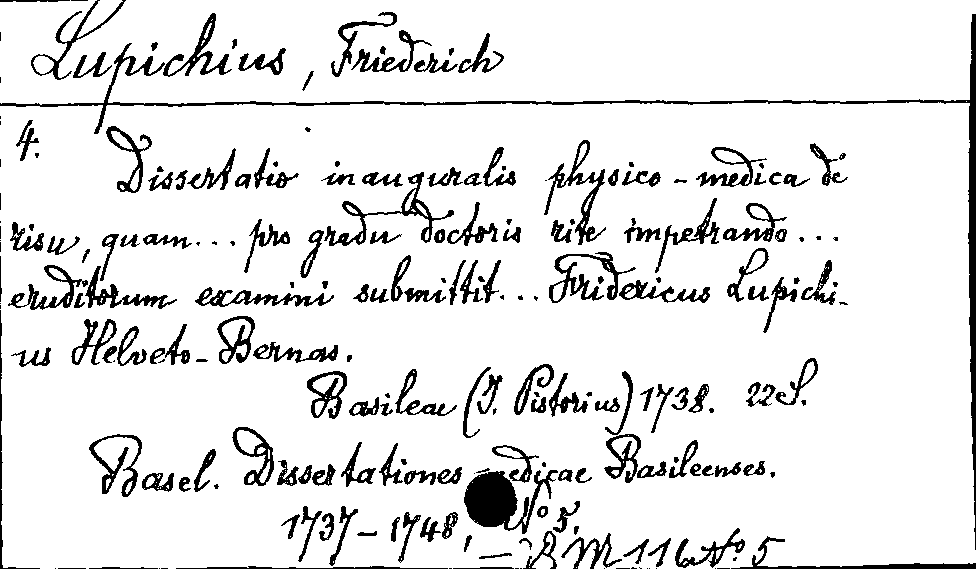 Lupichius, Friederich
4.
Dissertatio inauguralis physico-medica de
risu, quam... pro gradu doctoris rite impetrando...
eruditorum examini submittit... Fridericus Lupichi-
us Helveto-Bernas.
Basileae (J. Pistorius) 1738. 22 S.
Basel. Dissertationes medicae Basileenses.
1737-1748, No 5.
- B M 116 No 5